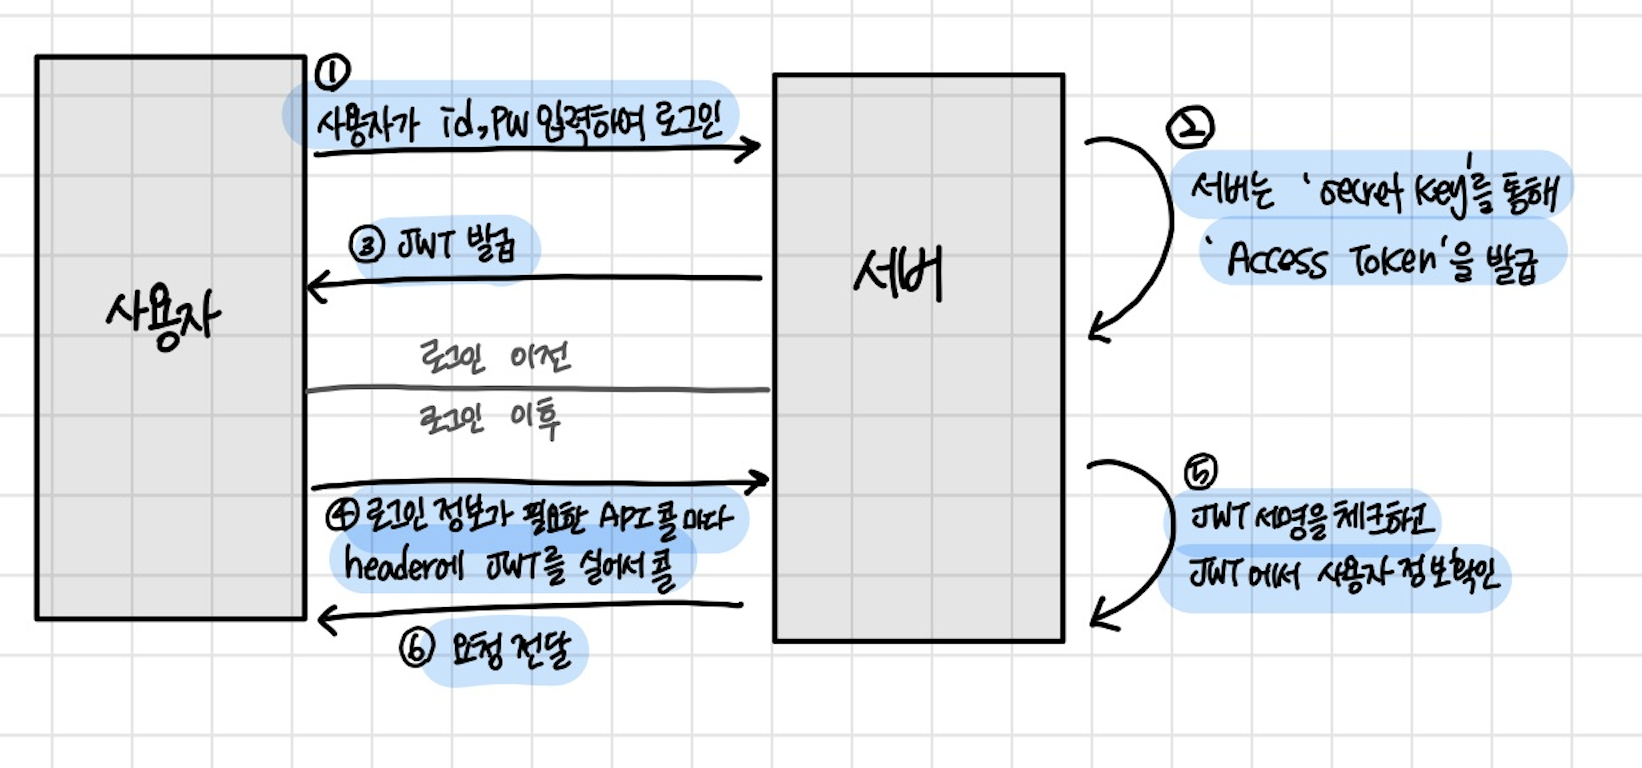 ①
사용자가 id, PW 입력하여 로그인
②
서버는 'secret key'를 통해
'Access Token'을 발급
③ JWT 발급
사용자
서버
로그인 이전
로그인 이후
④ 로그인 정보가 필요한 API 콜 마다
header에 JWT를 실어서 콜
⑤
JWT 서명을 체크하고
JWT에서 사용자 정보확인
⑥ 요청 전달